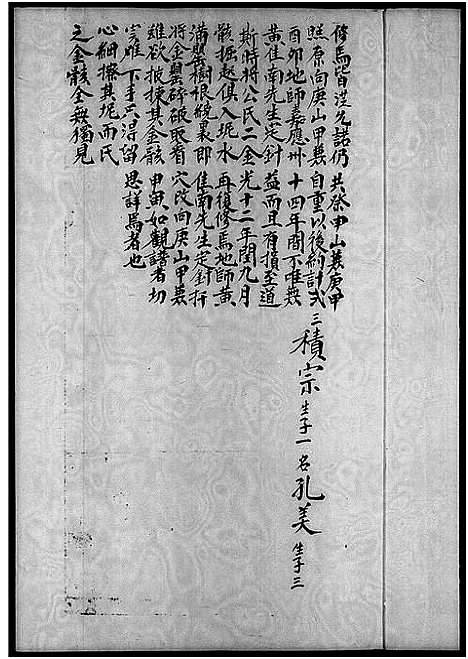 修焉皆允諾仍
照原向庚山甲兼
酉卯地師嘉應州
黃佳南先生定針
斯時將公氏二金
骸掘起俱入坭水
滿甖樹根繞裹即
將金甖碎破取看
雖欲披揀其金骸
實難下手只得留
心細擦其坭而氏
之金骸全無獨見
共祭申山兼庚甲
自重以後約計弍
十四年間不唯無
益而且有損至道
光十二年閏九月
再復修焉地師黃
佳南先生定針扦
穴改向庚山甲兼
申寅如觀譜者切
思詳焉者也
三積宗生子一名孔美生子三